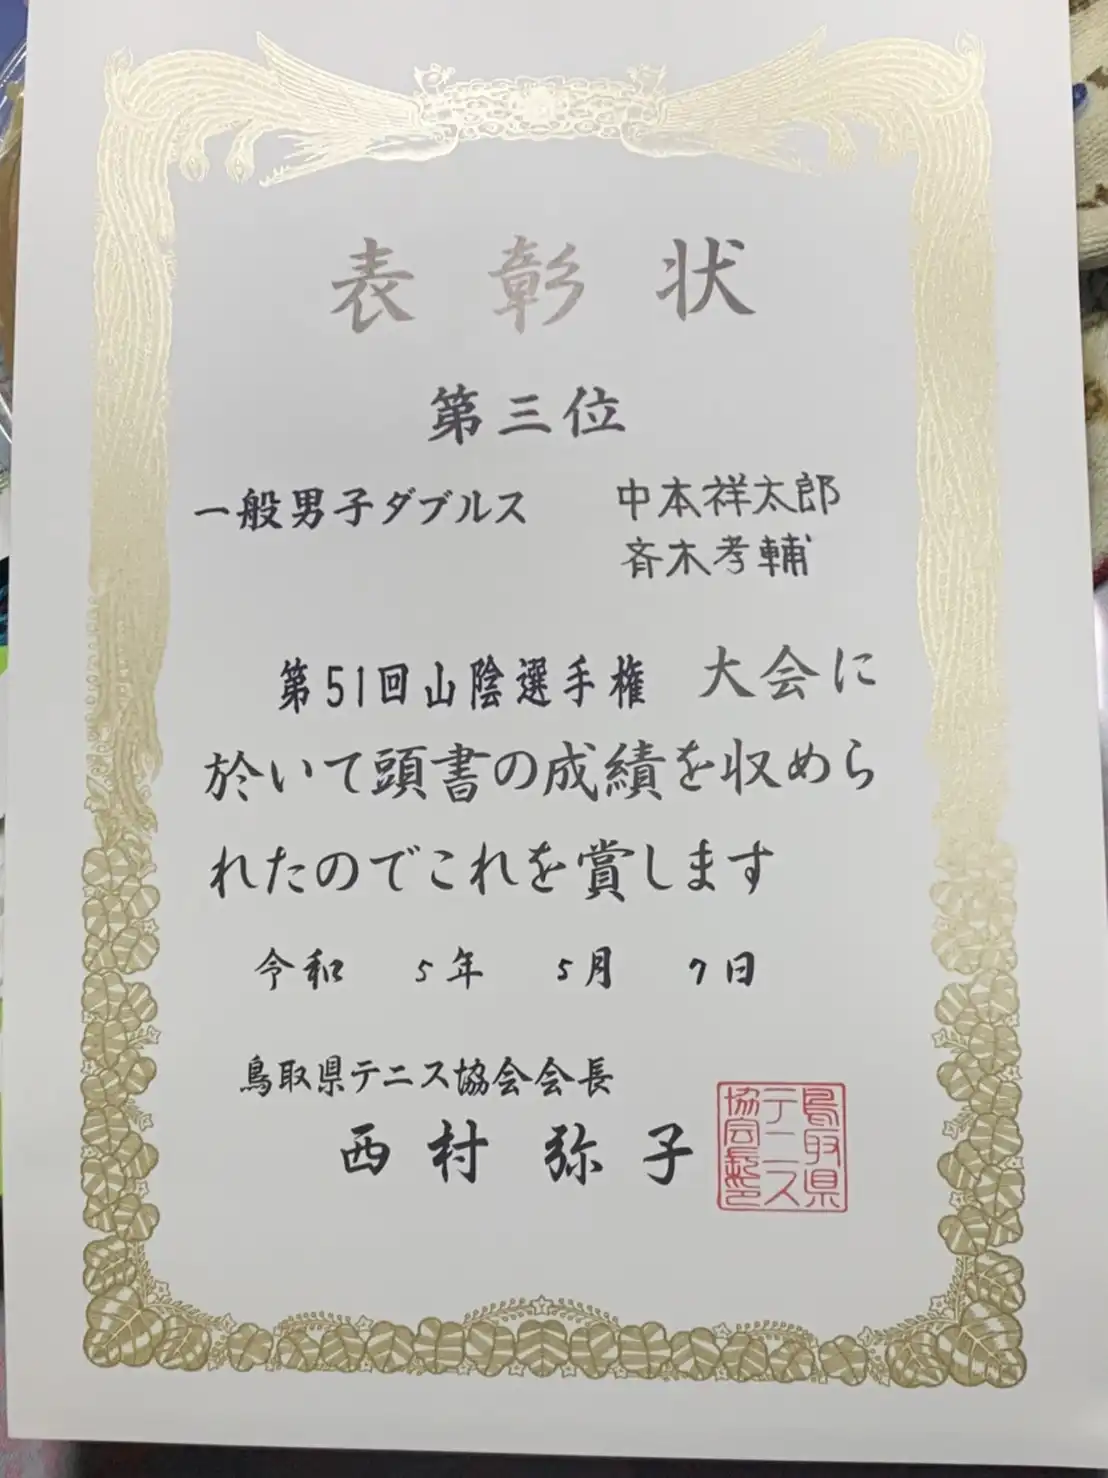 表彰状
第三位
一般男子ダブルス 中本祥太郎
斉木孝輔
第51回山陰選手権 大会に
於いて頭書の成績を収めら
れたのでこれを賞します
令和 5年 5月 7日
鳥取県テニス協会会長
西村弥子
鳥取県
テニス
協会長印